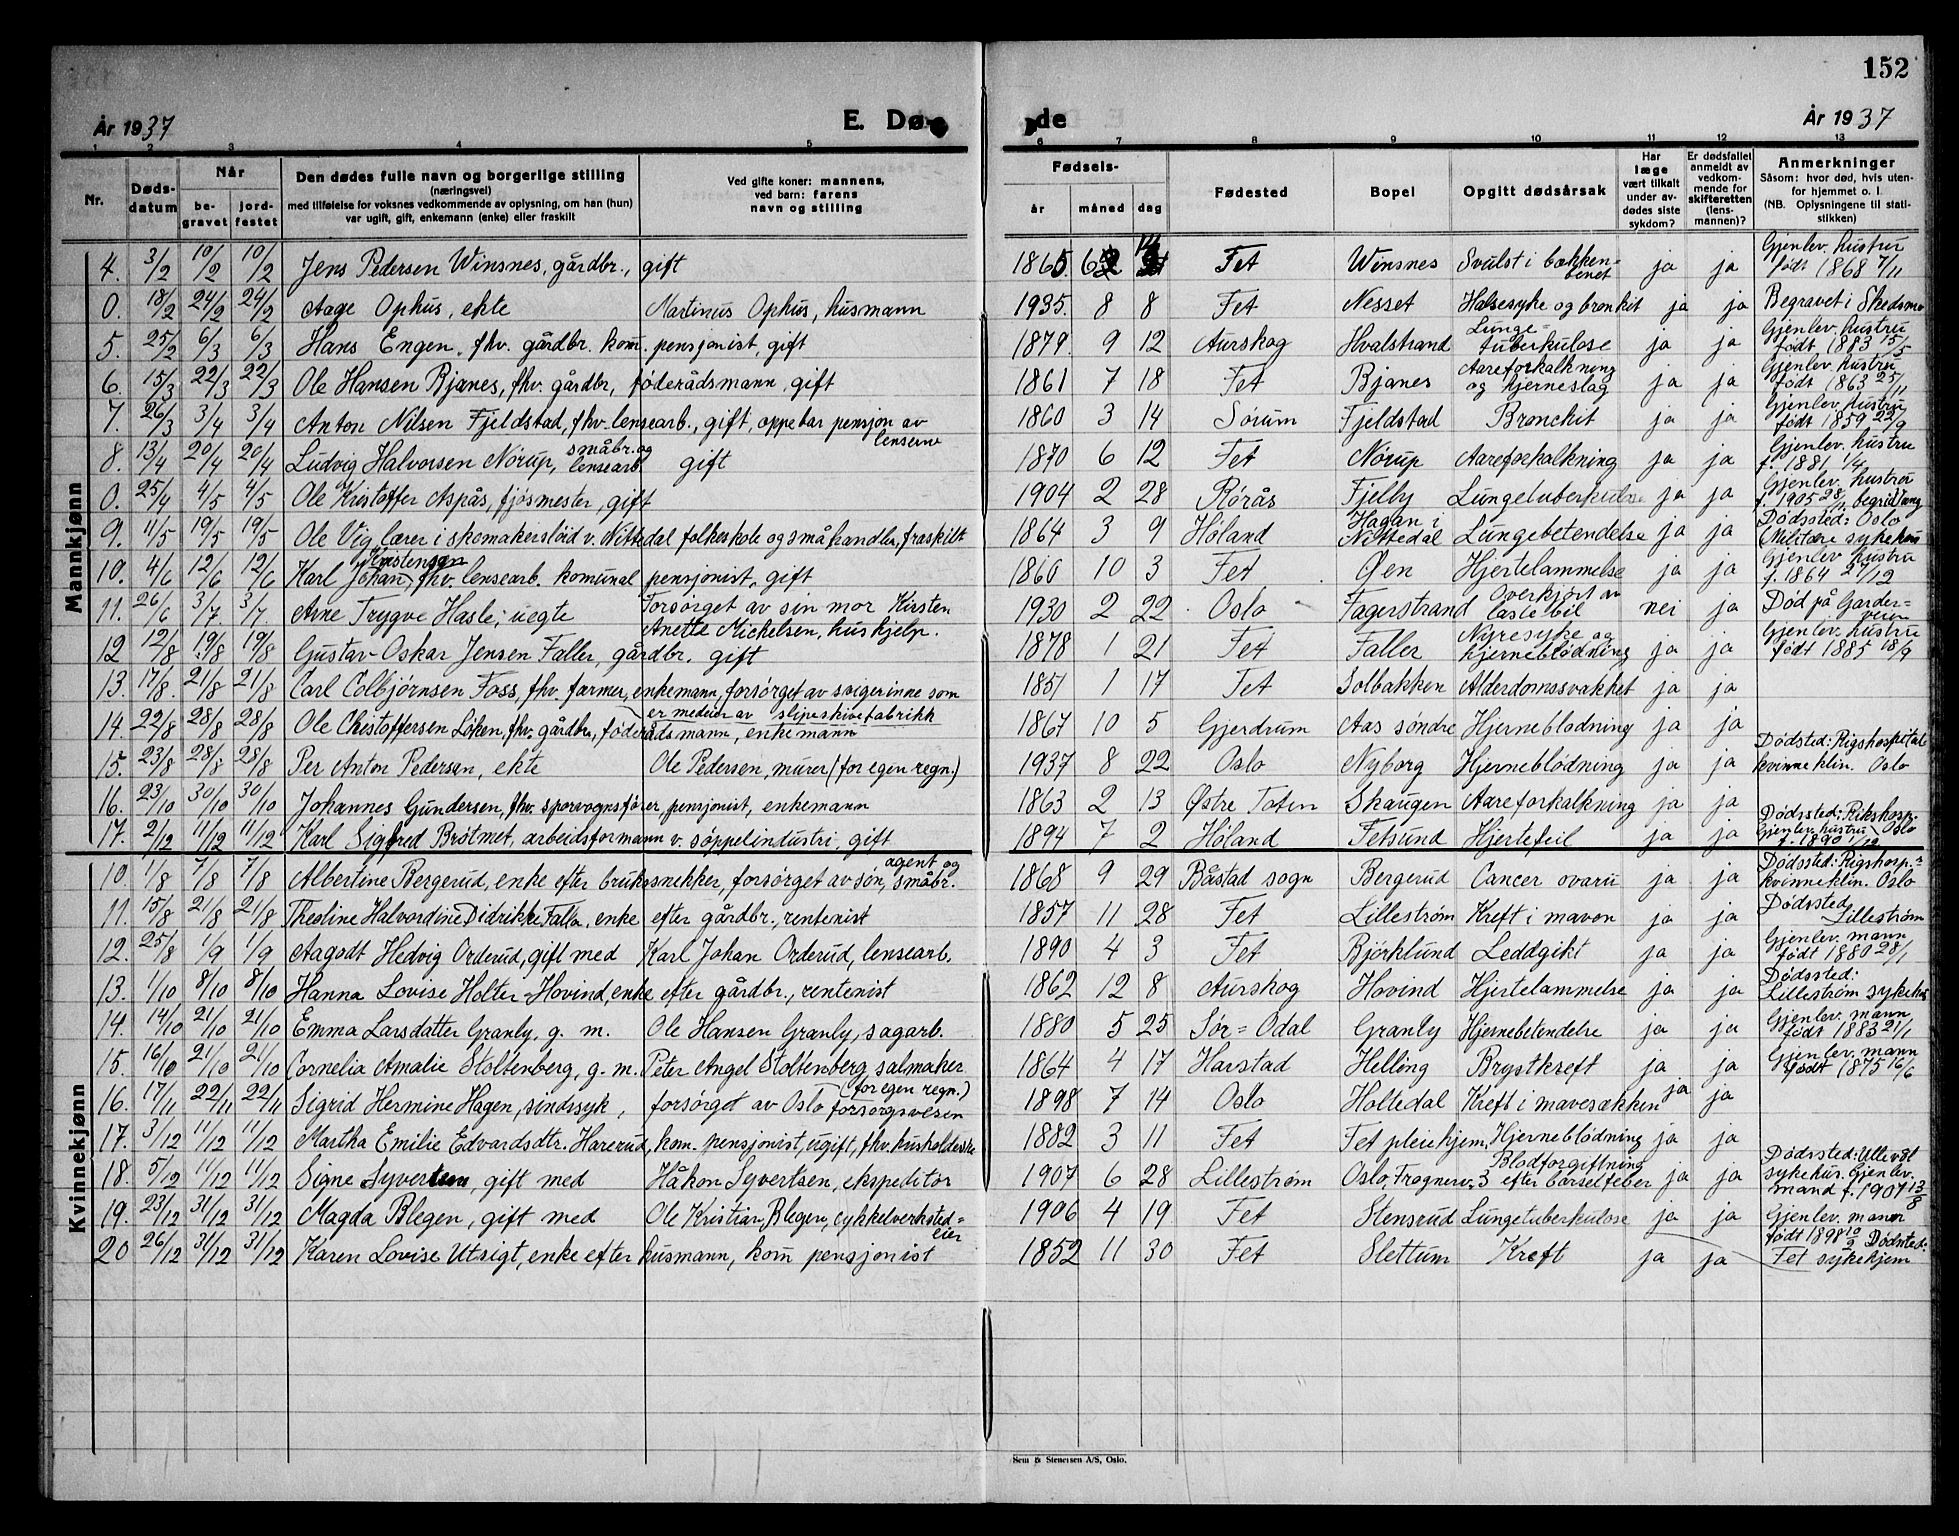 152
År 1937 E. Dø de År 1937
1 2 3 4 5 6 7 8 9 10 11 12 13
Nr. Døds-datum Når begravet jordfestet Den dødes fulle navn og borgerlige stilling (næringsvei) med tilføielse for voksnes vedkommende av oplysning, om han (hun) var ugift, gift, enkemann (enke) eller fraskilt Ved gifte koner: mannens, ved barn: farens navn og stilling Fødsels- år måned dag Fødested Bopel Opgitt dødsårsak Har læge vært tilkalt under avdødes siste sykdom? Er dødsfallet anmeldt av vedkommende for skifteretten (lensmannen)? Anmerkninger Såsom: hvor død, hvis utenfor hjemmet o. l. (NB. Oplysningene til statistikken)
Mannkjønn
4. 3/2 10/2 10/2 Jens Pedersen Winsnes, gårdbr., gift 1865. 6 14 Fet Winsnes Svulst i bækkenbenet ja ja Gjenlev. hustru født 1868 7/11
0. 18/2 24/2 24/2 Aage Ophus, ekte Martinus Ophus, husmann 1935. 8 8 Fet Nesset Halsesyke og bronkit ja ja Begravet i Skedsmo
5. 25/2 6/3 6/3 Hans Engen, fhv. gårdbr. kom. pensjonist, gift 1879. 9 12 Aurskog Hvalstrand Lungetuberkulose ja ja Gjenlev. hustru født 1883 15/5
6. 15/3 22/3 22/3 Ole Hansen Bjanes, fhv. gårdbr., føderådsmann, gift 1861 7 18 Fet Bjanes Aareforkalkning og hjerneslag ja ja Gjenlev. hustru født 1863 25/11
7. 26/3 3/4 3/4 Anton Nilsen Fjeldstad, fhv. lensearb., gift, oppebar pensjon av lensene 1860 3 14 Sørum Fjeldstad Bronchit ja ja Gjenlev. hustru født 1859 22/9
8. 13/4 20/4 20/4 Ludvig Halvorsen Nørup, småbr. og lensearb. gift 1870 6 12 Fet Nørup Aareforkalkning ja ja Gjenlev. hustru f. 1881 1/4
0. 25/4 4/5 4/5 Ole Kristoffer Aspås, fjøsmester, gift 1904 2 28 Rørås Fjelby Lungetuberkulose ja ja Gjenlev. hustru f. 1905 28/11
9. 11/5 19/5 19/5 Ole Vig lærer i skomakersløid v. Nittedal folkeskole og småhandler, fraskilt 1864 3 9 Høland Hagan i Nittedal Lungebetendelse ja ja Dødssted: Oslo Militære sykehus
10. 4/6 12/6 12/6 Karl Johan Kristensen, fhv. lensearb. komunal pensjonist, gift 1860 10 3 Fet Øen Hjertelammelse ja ja Gjenlev. hustru f. 1864 27/12
11. 26/6 3/7 3/7. Arne Trygve Hasle, uegte Forsørget av sin mor Kirsten Anette Michelsen, hushjelp. 1930 2 22 Oslo Fagerstrand Overkjørt av lastebil nei ja Død på Garderveien
12 12/8 19/8 19/8 Gustav Oskar Jensen Faller, gårdbr. gift 1878 1 21 Fet Faller Nyresyke og hjerneblødning ja ja Gjenlev. hustru født 1885 18/9
13. 17/8. 21/8 21/8 Carl Colbjørnsen Foss, fhv. farmer, enkemann, forsørget av svigerinne som er medeier av slipeskivefabrikk 1851 1 17 Fet Solbakken Alderdomssvakhet ja ja
14. 22/8 28/8 28/8 Ole Christoffersen Löken, fhv. gårdbr., føderådsmann, enkemann 1867 10 5 Gjerdrum Aas søndre Hjerneblødning ja ja
15. 23/8 28/8 28/8 Per Anton Pedersen, ekte Ole Pedersen, murer (for egen regn.) 1937 8 22 Oslo Nyborg Hjerneblødning ja ja Dødsted: Rigshospitalet kvinneklin. Oslo
16. 23/10 30/10 30/10 Johannes Gundersen, fhv. sporvognsfører, pensjonist, enkemann 1863 2 13 Østre Toten Skaugen Aareforkalkning ja ja
17. 2/12 11/12 11/12 Karl Sigfred Brøtmet, arbeidsformann v. søppelindustri, gift 1894 7 2 Høland Fetsund Hjertefeil ja ja Dødssted: Rikshosp. Oslo Gjenlev. hustru f. 1890 1/12
Kvinnekjønn
10. 1/8 7/8 7/8 Albertine Bergerud, enke efter bruksnekker, forsørget av søn, agent og småbr. 1868 9 29 Båstad sogn Bergerud Cancer ovarii ja ja Dødssted: Rigshosp. kvinneklin. Oslo
11. 15/8 21/8 21/8 Theoline Halvordine Didrikke Falla, enke efter gårdbr., rentenist 1857 11 28 Fet Lillestrøm Kreft i maven ja ja Dødssted Lillestrøm
12. 25/8 1/9 1/9 Aagodt Hedvig Orderud, gift med Karl Johan Orderud, lensearb. 1890 4 3 Fet Björklund Leddgikt ja ja Gjenlev. mann født 1880 28/1
13. 1/10 8/10 8/10 Hanna Lovise Holter-Hovind, enke efter gårdbr., rentenist 1862 12 8 Aurskog Hovind Hjertelammelse ja ja Dødssted: Lillestrøm sykehus
14. 14/10 21/10 21/10 Emma Larsdatter Granly, g. m. Ole Hansen Granly, sagarb. 1880 5 25 Sør=Odal Granly Hjernebetendelse ja ja Gjenlev. mann født 1883 21/1
15. 16/10 21/10 21/10 Cornelia Amalie Stoltenberg, g. m. Peter Angel Stoltenberg, salmaker (for egen regn.) 1864 4 17 Harstad Helling Brystkreft ja ja Gjenlev. mann født 1875 16/6
16. 17/11 22/11 22/11 Sigrid Hermine Hagen, sindssyk, forsørget av Oslo forsorgsvesen 1898 7 14 Oslo Holtedal Kreft i mavesækken ja ja
17. 3/12 11/12 11/12 Martha Emilie Edvardsdtr. Harerud, kom. pensjonist, ugift, fhv. husholderske 1882 3 11 Fet Fet pleiehjem Hjerneblödning ja ja
18. 5/12 11/12 11/12 Signe Syvertsen, gift med Håkon Syvertsen, ekspeditør 1907 6 28 Lillestrøm Oslo, Frognerv. 3 Blodforgiftning efter barselfeber ja ja Dødssted: Ullevål sykehus. Gjenlev. mand f. 1907 13/8
19. 23/12 31/12 31/12 Magda Blegen, gift med Ole Kristian Blegen, cykkelverksted=eier 1906 4 19 Fet Stensrud Lungetuberkulose ja ja Gjenlev. mann født 1898 10/2
20 26/12 31/12 31/12 Karen Lovise Utsigt, enke efter husmann, kom pensjonist 1852 11 30 Fet Slettum Kreft ja ja Dødsted: Fet sykehjem
Sem & Stenersen A/S, Oslo.